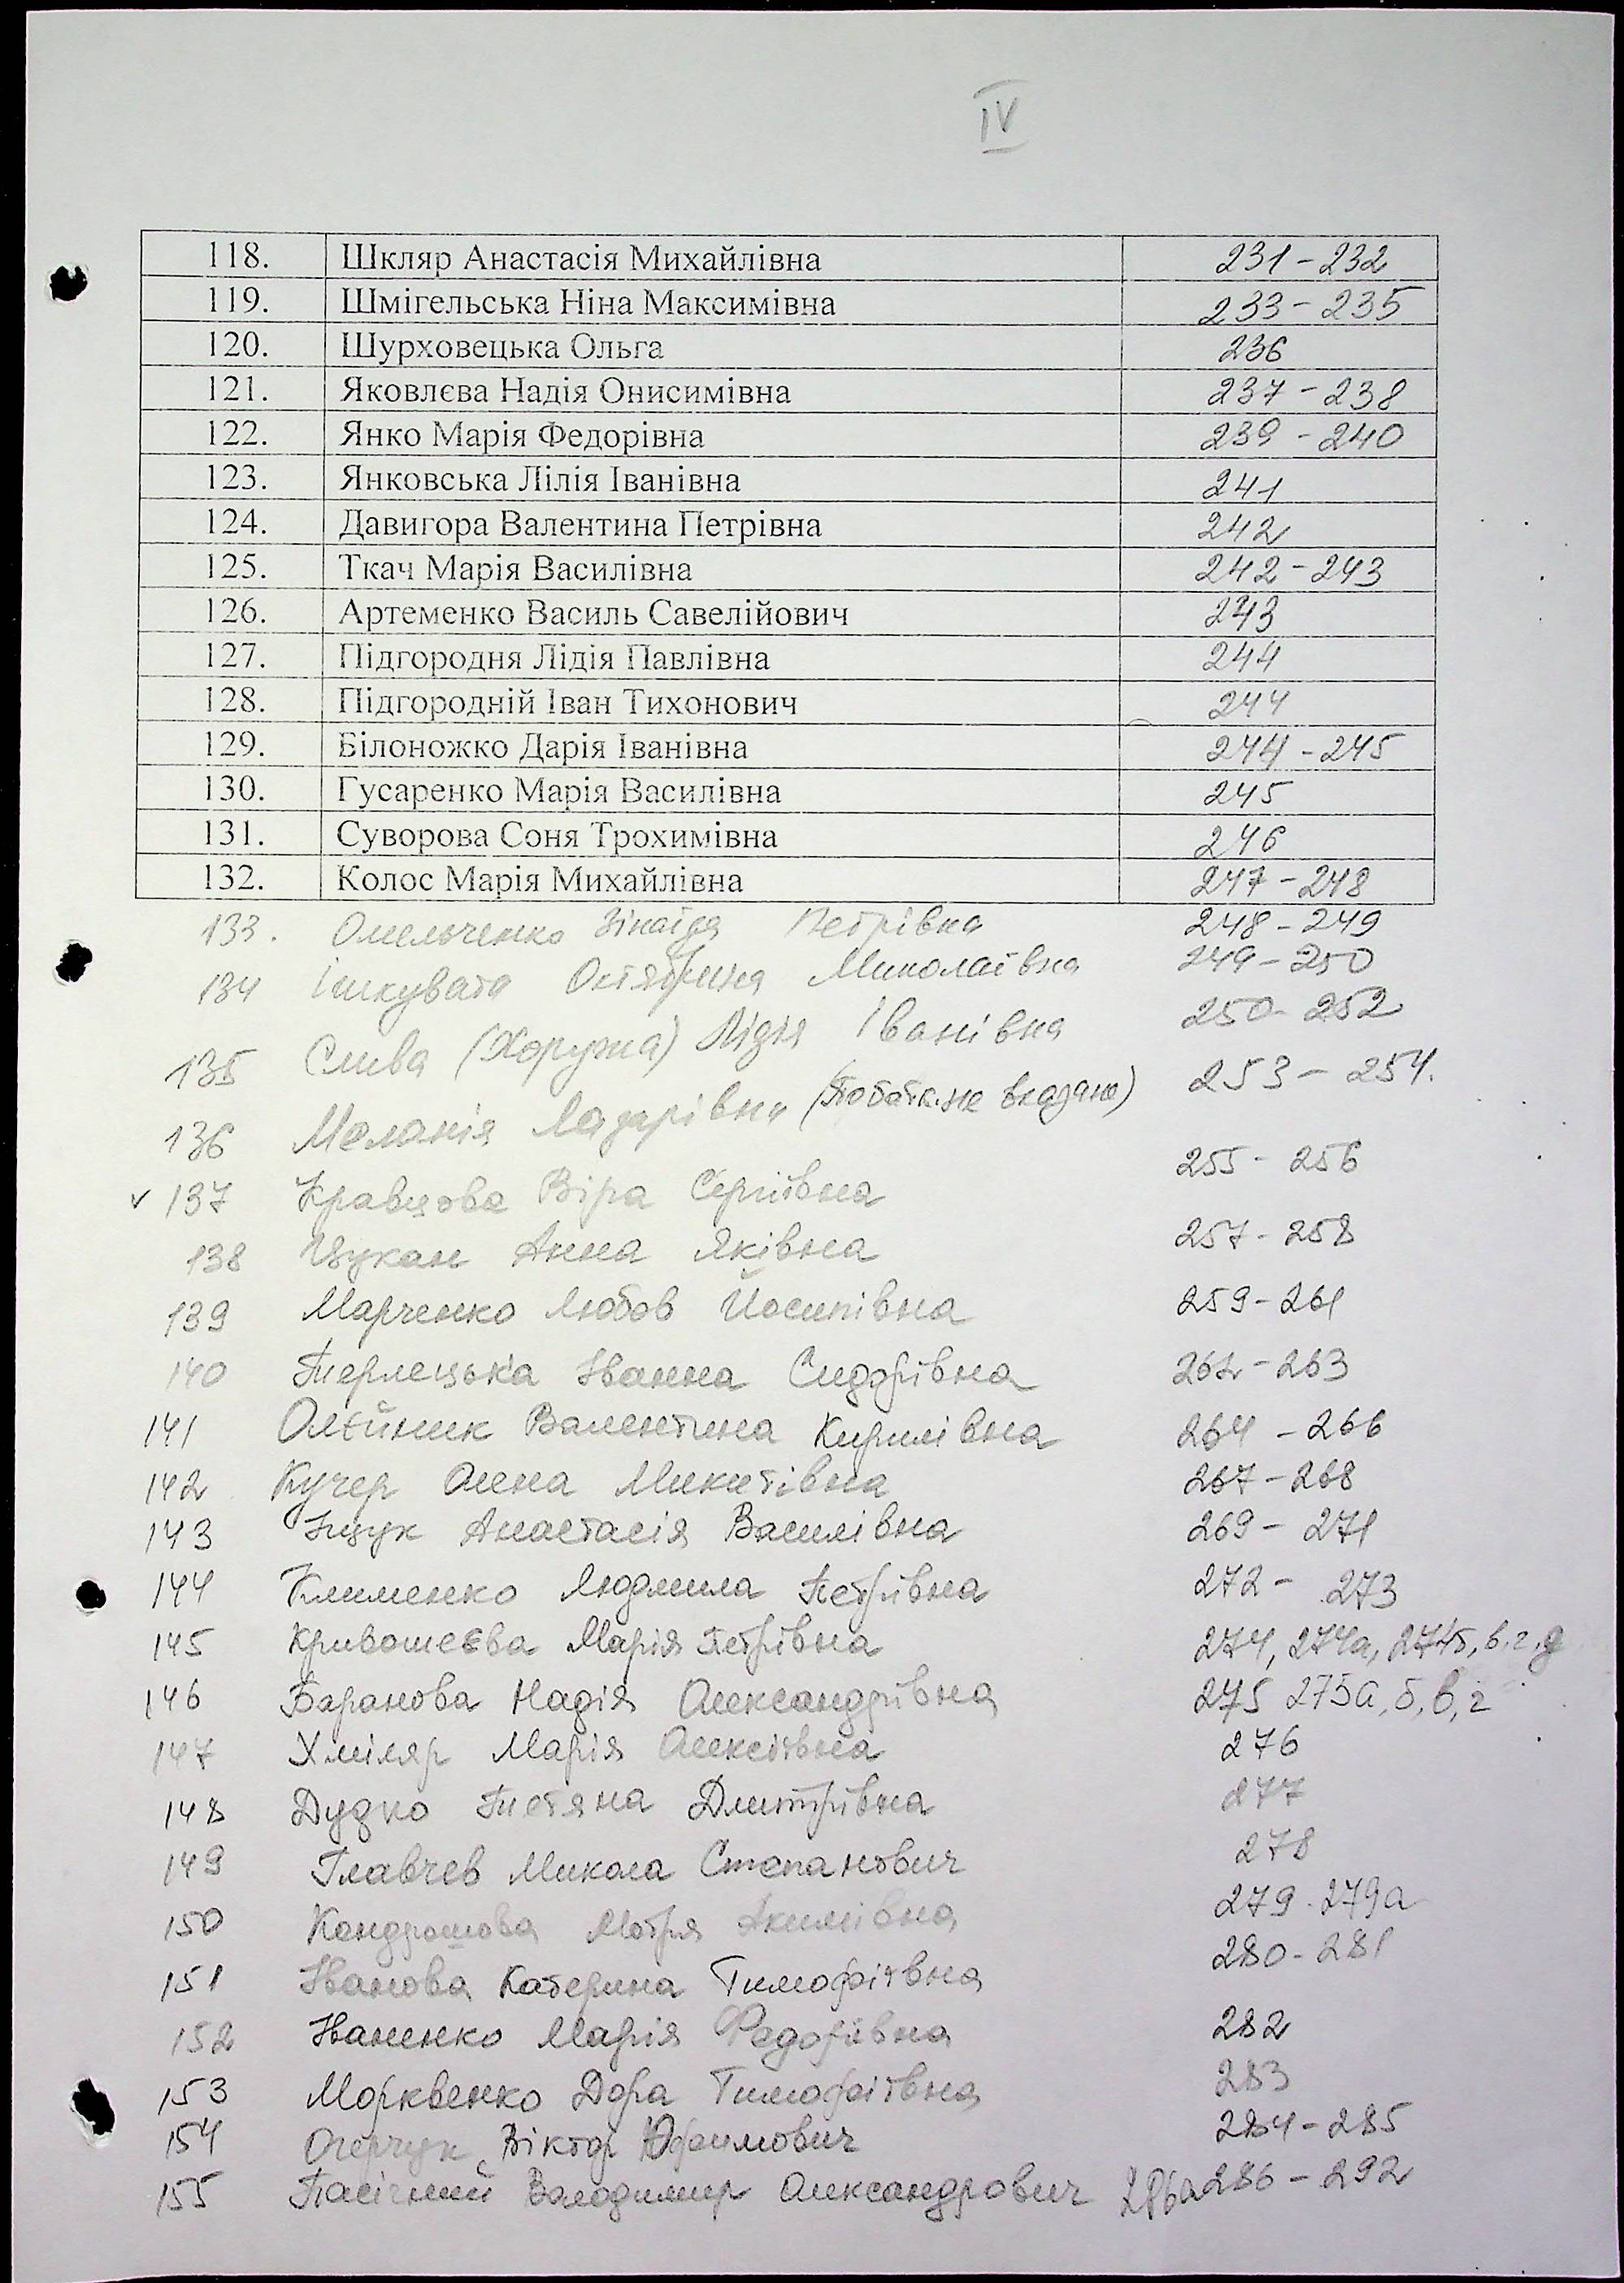 IV
118. Шкляр Анастасія Михайлівна 231-232
119. Шмігельська Ніна Максимівна 233-235
120. Шурховецька Ольга 236
121. Яковлєва Надія Онисимівна 237-238
122. Янко Марія Федорівна 239-240
123. Янковська Лілія Іванівна 241
124. Давигора Валентина Петрівна 242
125. Ткач Марія Василівна 242-243
126. Артеменко Василь Савелійович 243
127. Підгородня Лідія Павлівна 244
128. Підгородній Іван Тихонович 244
129. Білоножко Дарія Іванівна 244-245
130. Гусаренко Марія Василівна 245
131. Суворова Соня Трохимівна 246
132. Колос Марія Михайлівна 247-248
133. Омельченко Зінаїда Петрівна 248-249
134 Октябрина Миколаївна 249-250
135 Слива (Хоружа) Лідія Іванівна 250-252
136 Меланія Лазарівна (по батьк. не вказано) 253-254.
✓ 137 Кравцова Віра Сергіївна 255-256
138 Цукан Анна Яківна 257-258
139 Марченко Любов Йосипівна 259-261
140 Терлецька Іванна Сидорівна 262-263
141 Олєйник Валентина Кирилівна 264-266
142 Кучер Олена Микитівна 267-268
143 Іщук Анастасія Василівна 269-271
144 Клименко Людмила Петрівна 272-273
145 Кривошеєва Марія Петрівна 274, 274а, 274б, в, г, д
146 Баранова Надія Олександрівна 275 275а, б, в, г
147 Хміляр Марія Олексіївна 276
148 Дудко Тетяна Дмитрівна 277
149 Главчев Микола Степанович 278
150 Кондрашова Мотря Акимівна 279-279а
151 Іванова Катерина Тимофіївна 280-281
152 Іваненко Марія Федорівна 282
153 Морквенко Дора Тимофіївна 283
154 Віктор Юхимович 284-285
155 Пасічний Володимир Олександрович 286а 286-292